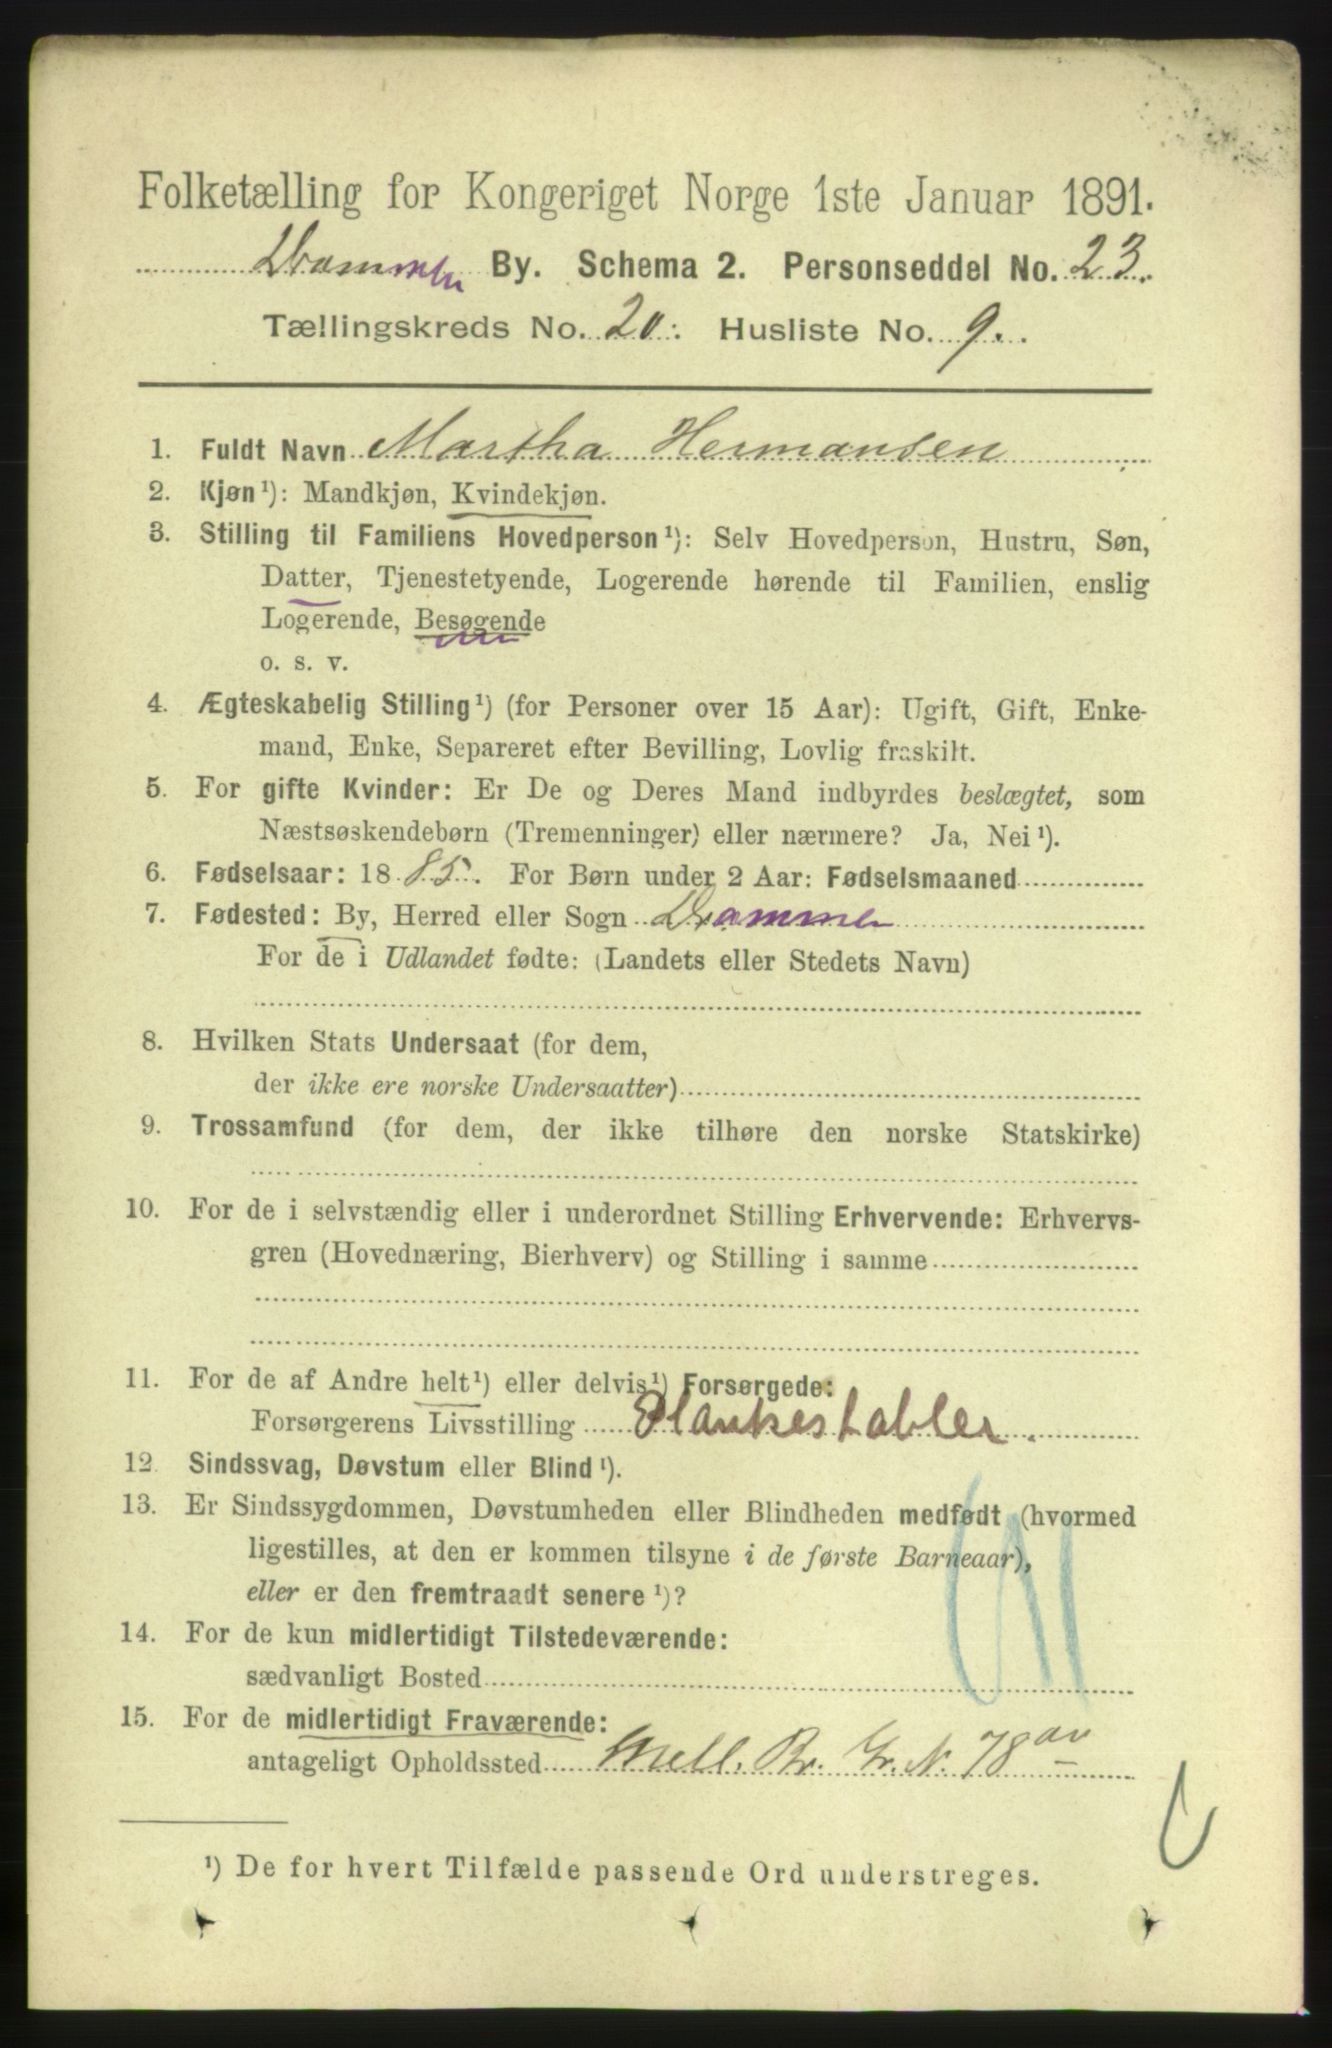 Folketælling for Kongeriget Norge 1ste Januar 1891.
Drammen By. Schema 2. Personseddel No. 23.
Tællingskreds No. 20. Husliste No. 9.
1. Fuldt Navn Martha Hermansen
2. Kjøn¹): Mandkjøn, Kvindekjøn.
3. Stilling til Familiens Hovedperson¹): Selv Hovedperson, Hustru, Søn,
Datter, Tjenestetyende, Logerende hørende til Familien, enslig
Logerende, Besøgende
o. s. v.
4. Ægteskabelig Stilling¹) (for Personer over 15 Aar): Ugift, Gift, Enke-
mand, Enke, Separeret efter Bevilling, Lovlig fraskilt.
5. For gifte Kvinder: Er De og Deres Mand indbyrdes beslægtet, som
Næstsøskendebørn (Tremenninger) eller nærmere? Ja, Nei¹).
6. Fødselsaar: 1885. For Børn under 2 Aar: Fødselsmaaned
7. Fødested: By, Herred eller Sogn Drammen
For de i Udlandet fødte: (Landets eller Stedets Navn)
8. Hvilken Stats Undersaat (for dem,
der ikke ere norske Undersaatter)
9. Trossamfund (for dem, der ikke tilhøre den norske Statskirke)
10. For de i selvstændig eller i underordnet Stilling Erhvervende: Erhvervs-
gren (Hovednæring, Bierhverv) og Stilling i samme
11. For de af Andre helt¹) eller delvis¹) Forsørgede:
Forsørgerens Livsstilling Plankestabler.
12. Sindssvag, Døvstum eller Blind¹).
13. Er Sindssygdommen, Døvstumheden eller Blindheden medfødt (hvormed
ligestilles, at den er kommen tilsyne i de første Barneaar),
eller er den fremtraadt senere¹)?
14. For de kun midlertidigt Tilstedeværende:
sædvanligt Bosted
15. For de midlertidigt Fraværende:
antageligt Opholdssted Mell. Br. Gr. N. 78
¹) De for hvert Tilfælde passende Ord understreges.